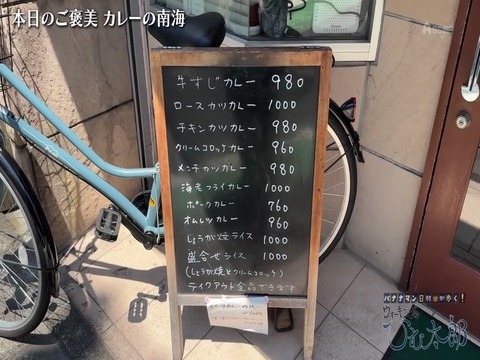 本日のご褒美 カレーの南海
牛すじカレー 980
ロースカツカレー 1000
チキンカツカレー 980
クリームコロッケカレー 960
メンチカツカレー 980
海老フライカレー 1000
ポークカレー 760
オムレツカレー 960
しょうが焼ライス 1000
盛合せライス 1000
(しょうが焼とクリームコロッケ)
テイクアウト全品できます
バナナマン日村が歩く!
ウォーキングのひむ太郎